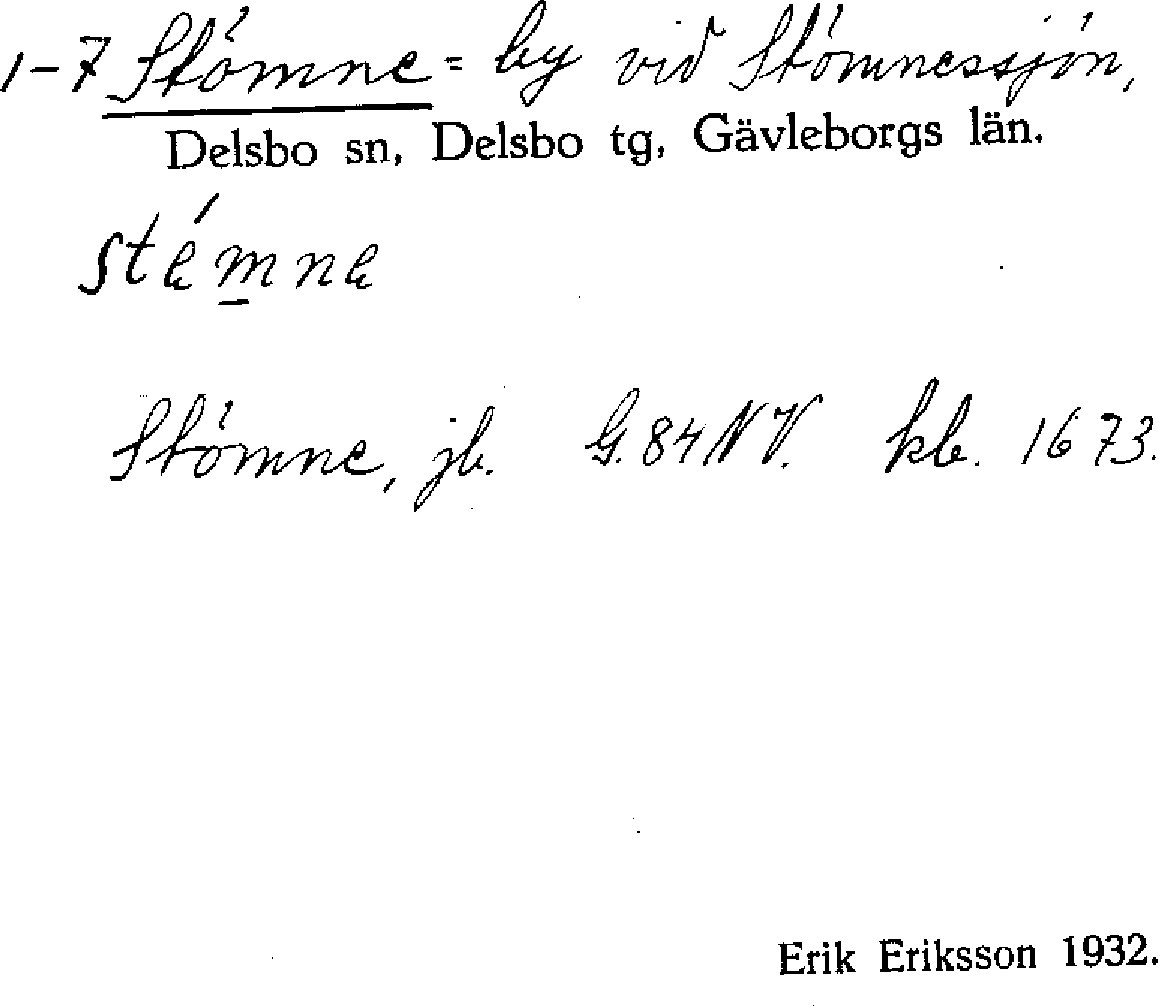 1-7 Stömne = by vid Stömnessjön,
Delsbo sn, Delsbo tg, Gävleborgs län.
stémne
Stömne, jb. G.84NV. kb. 1673.
Erik Eriksson 1932.